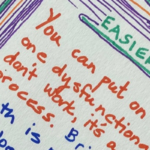 EASIER
You can put on
one dysfunctional
don't work, it's a
process. Bri
th is